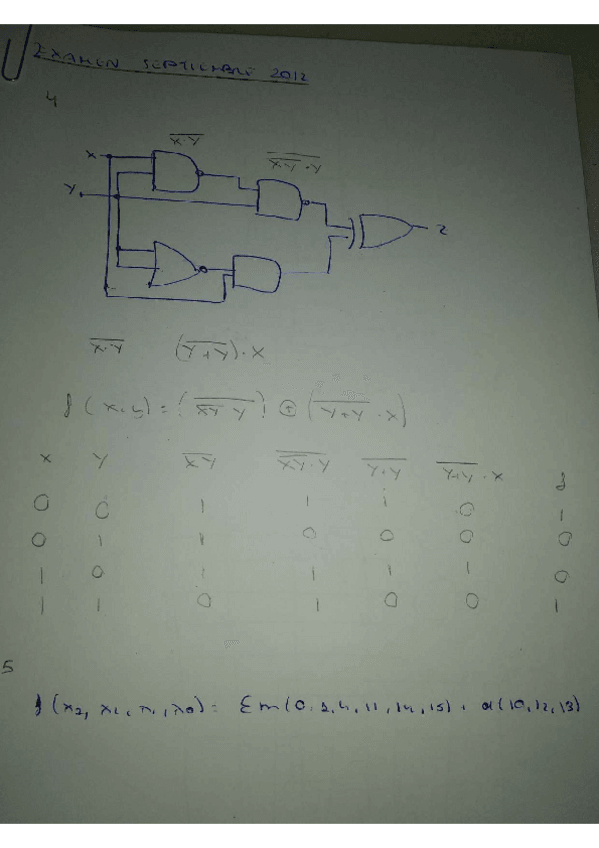 EXAMEN SEPTIEMBRE 2012
4
X
Y
\overline{X·Y}
\overline{\overline{X·Y}·Y}
z
\overline{X·Y} (\overline{Y+Y})·X
f(x,y)=(\overline{\overline{XY}·Y}) ⊕ (\overline{Y+Y}·X)
X Y \overline{XY} \overline{\overline{XY}·Y} \overline{Y+Y} \overline{Y+Y}·X f
0 0 1 1 1 0 1
0 1 1 0 0 0 0
1 0 1 1 1 1 0
1 1 0 1 0 0 1
5
= Σm(0,2,4,11,14,15), d(10,12,13)